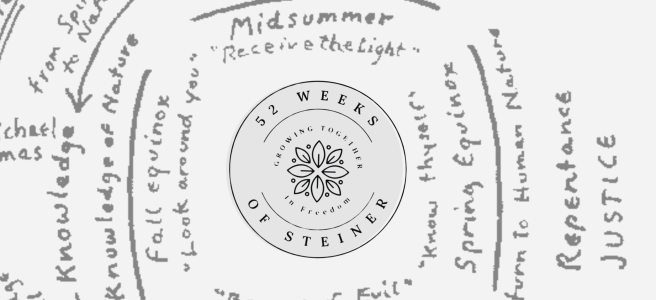 from Spir
to Na
Midsummer
"Receive the Light"
ichael
mas
Knowledge
Knowledge of Nature
Fall equinox
"Look around you"
52 WEEKS
GROWING TOGETHER
in Freedom
OF STEINER
"Know thyself"
Spring Equinox
turn to Human Nature
Repentance
JUSTICE
Evil"